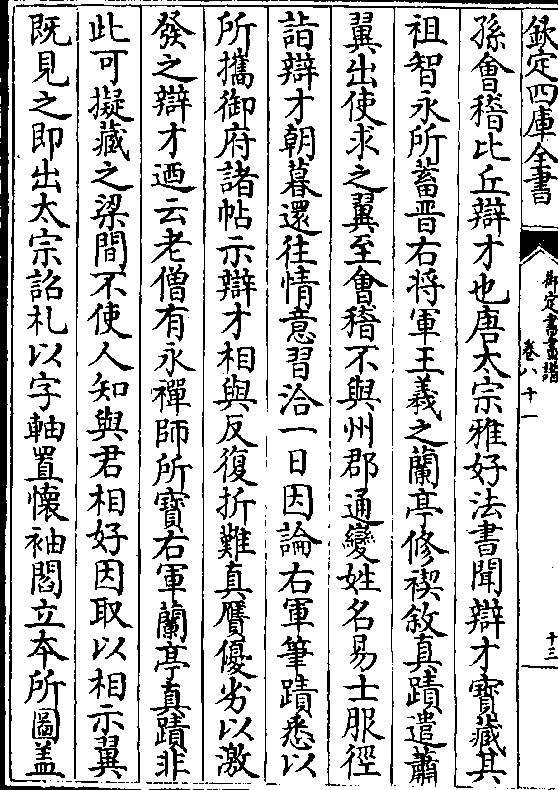 欽定四庫全書
御定書畫譜
卷八十一
十三
孫會稽比丘辯才也唐太宗雅好法書聞辯才寳藏其
祖智永所蓄晋右將軍王羲之蘭亭修禊敘真蹟遣蕭
翼出使求之翼至會稽不與州郡通變姓名易士服徑
詣辯才朝暮還往情意習洽一日因論右軍筆蹟悉以
所攜御府諸帖示辯才相與反復折難真贗優劣以激
發之辯才迺云老僧有永禪師所寳右軍蘭亭真蹟非
此可擬藏之梁間不使人知與君相好因取以相示翼
既見之即出太宗詔札以字軸置懷袖閻立本所圖盖